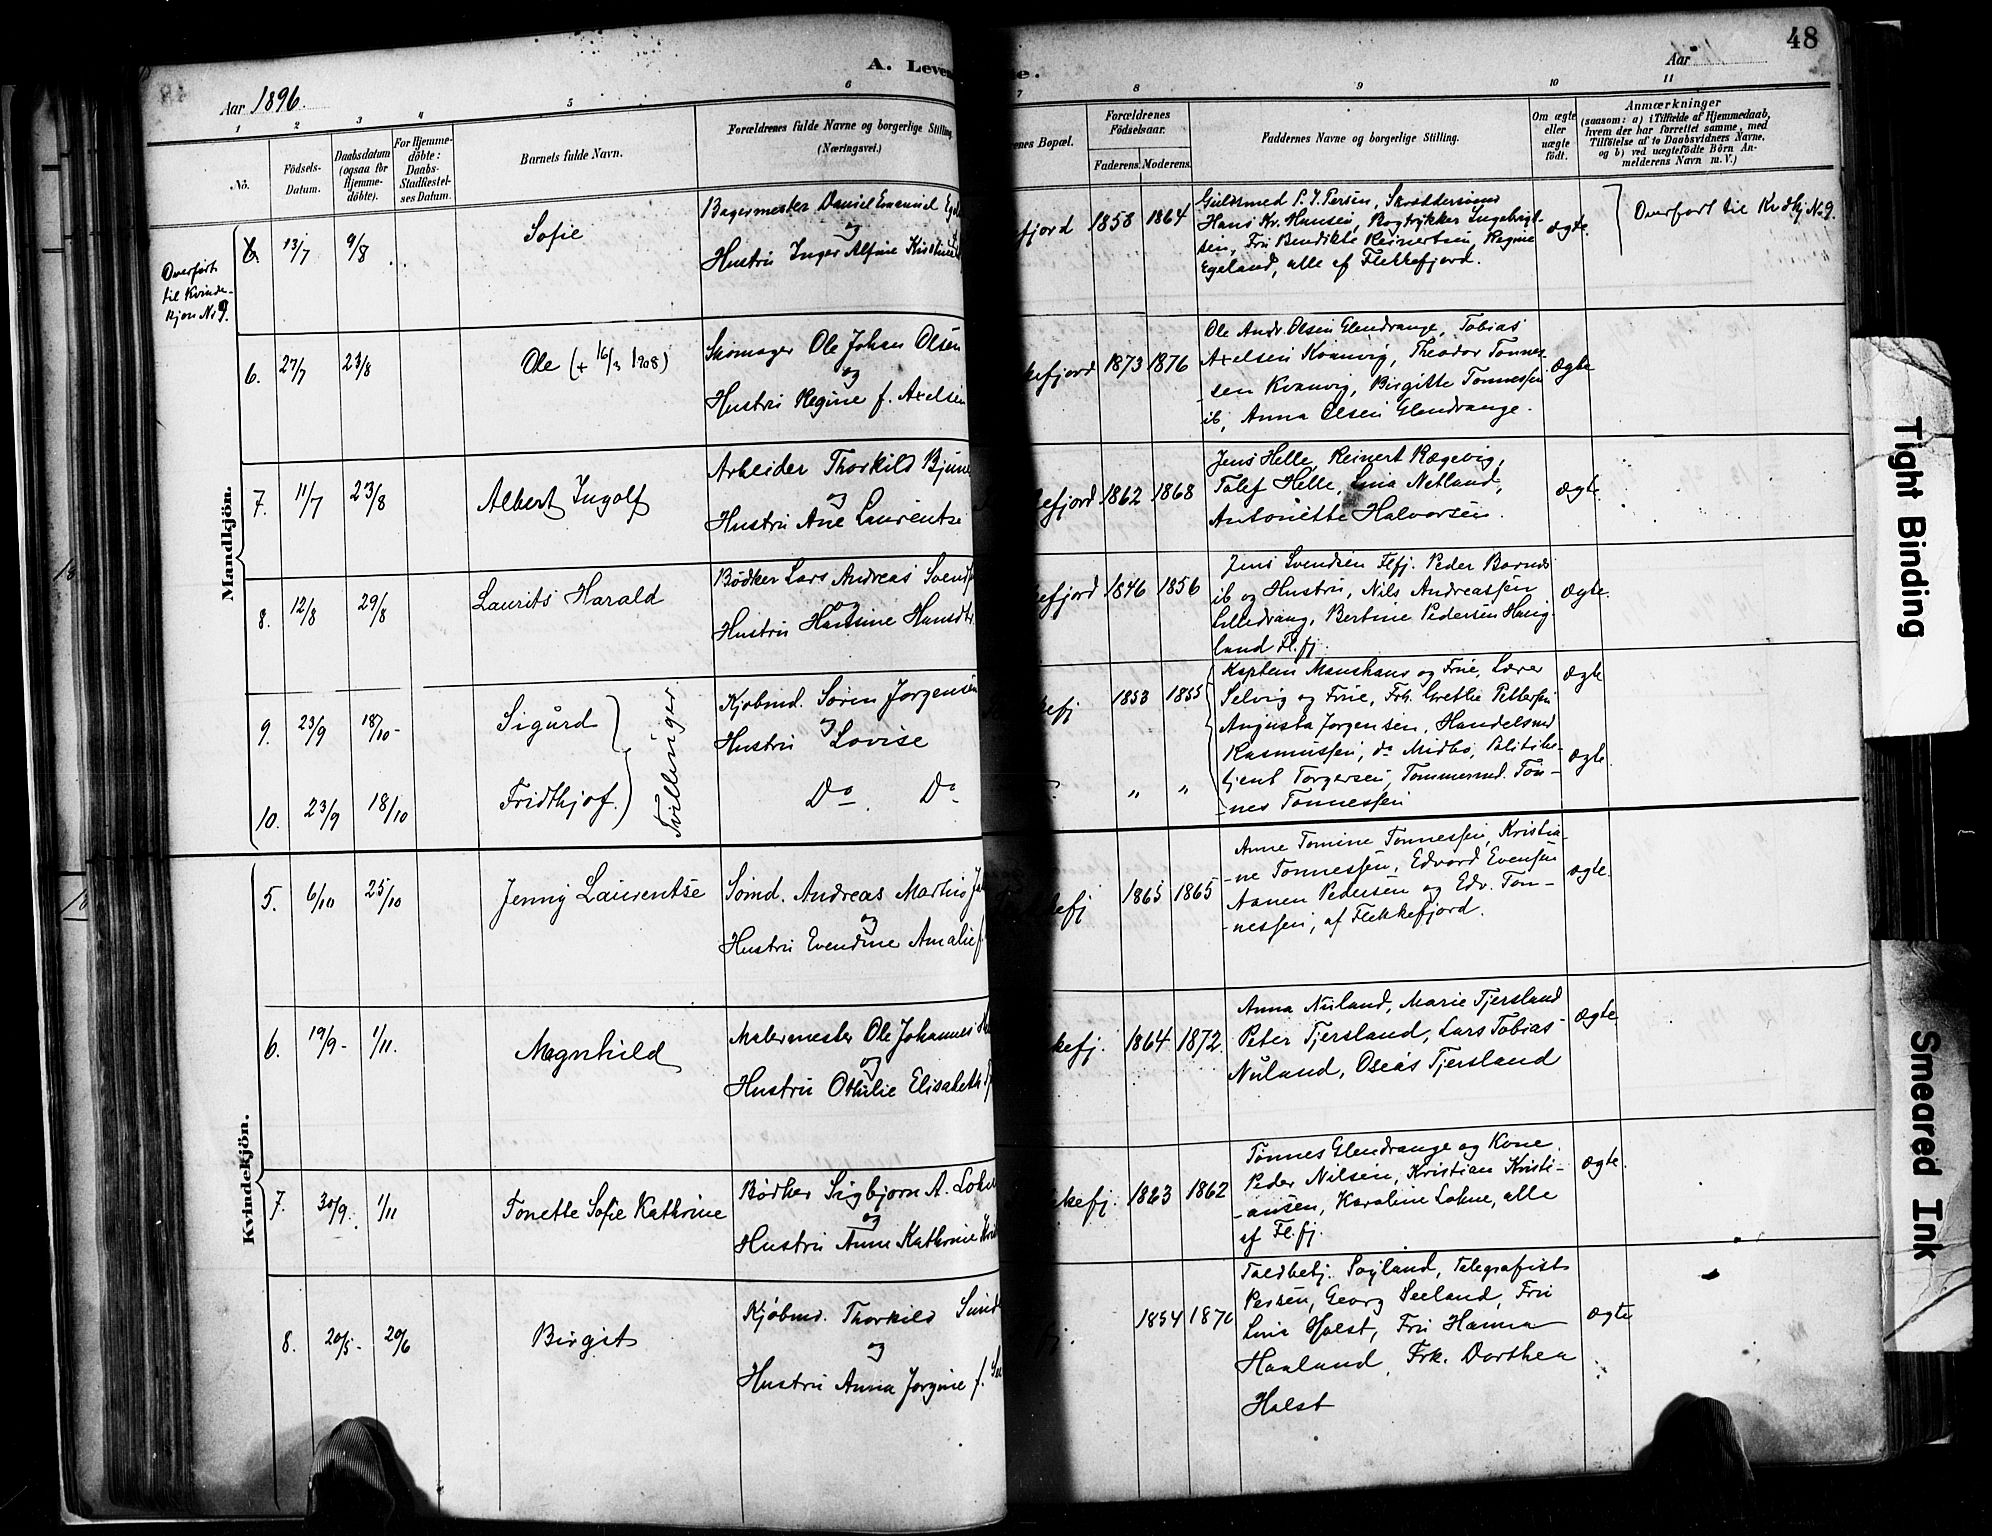 48
A. Leven
Aar 1896.
Aar
1 2 3 4 5 6 7 8 9 10 11
No.
Födsels-
Datum.
Daabsdatum
(ogsaa for
Hjemme-
döbte).
For Hjemme-
döbte:
Daabs-
Stadfæstel-
ses Datum.
Barnets fulde Navn.
Forældrenes fulde Navne og borgerlige Stilling
(Næringsvei.)
renes Bopæl.
Forældrenes
Födselsaar.
Faderens. Moderens.
Faddernes Navne og borgerlige Stilling.
Om ægte
eller
uægte
födt.
Anmærkninger
(saasom: a) i Tilfælde af Hjemmedaab,
hvem der har forrettet samme, med
Tilföielse af to Daabsvidners Navne.
og b) ved uægtefödte Börn An-
melderens Navn m. V.)
Mandkjön.
Overført
til Kvinde-
kjøn No 9.
13/7 9/8
Sofie
Bagermester Daniel Emanuel
og
Hustru Inger Alfine Kristine
fjord 1858 1864
Guldsmed P. J. Persen, Skræddersvend
Hans Kr. Hansen, Bogtrykker Ingebrigt-
sen, Fru Bendikte Reinertsen, Regine
Egeland, alle af Flekkefjord.
ægte.
Overført til Kvdkj No 9.
6. 27/7 23/8
Ole (+ 16/3 1908)
Skomager Ole Johan Olsen
og
Hustru Regine f. Axelsen
kefjord 1873 1876
Ole Andr. Olsen Glendrange, Tobias
Axelsen Kvanvig, Theodor Tønnes-
sen Kvanvig, Birgitte Tønnessen
ib, Anna Olsen Glendrange.
Ægte
7. 11/7 23/8
Albert Ingolf
Arbeider Thorkild
og
Hustru Ane Laurentse
efjord 1862 1868
Jens Helle, Reinert Rægevig,
Talef Helle, Lina Netland,
Antonette Halvorsen.
ægte.
8. 12/8 29/8
Laurits Harald
Bødker Lars Andreas
og
Hustru Hansine Hansdtr
efjord 1846 1856
Jens Svendsen Flfj. Peder
ib og Hustru, Nils Andreassen
Lilledrang, Bertine Pedersen Haug-
land Fl.fj.
Ægte.
9. 23/9 18/10-
Sigurd
Tvillinger
Kjøbmd. Søren Jørgensen
og
Hustru Lovise
kefj 1853 1855
Kaptein Monshaus og Frue, Lærer
Selvig og Frue, Frk. Grethe Pettersen
Augusta Jørgensen, Handelsmd
Rasmussen, do Midbø, Politibe-
tjent Torgersen, Tømmermd. Tøn-
nes Tønnessen
ægte
10. 23/9 18/10
Fridthjof.
Do. Do
" "
ægte.
Kvindekjön.
5. 6/10 25/10
Jenny Laurentse
Sømd. Andreas Martin
og
Hustru Evendine Amalie f.
kefj 1865 1865
Anne Tomine Tønnessen, Kristia-
ne Tønnessen, Edvard Evensen
Aanen Pedersen og Edv. Tøn-
nessen, af Flekkefjord.
ægte.
6. 19/9- 1/11.
Magnhild
Malermester Ole Johannes
og
Hustru Othilie Elisabeth
kefj. 1864 1872.
Anna Nuland, Marie Tjersland
Peter Tjersland, Lars Tobias
Nuland, Oseas Tjersland
Ægte.
7. 30/9. 1/11
Tonette Sofie Kathrine
Bødker Sigbjørn A.
og
Hustru Anne Kathrine
kefj. 1863 1862
Tønnes Glendrange og Kone,
Peder Nilsen, Kristian Kristi-
ansen, Karoline Lohne, alle
af Fl.fj.
Ægte.
8. 20/5- 20/6
Birgit
Kjøbmd. Thorkild
og
Hustru Anna Jørgine f.
1854 1870
Toldbetj. Søyland, Telegrafist
Persen, Georg Seeland, Fru
Lina Holst, Fru Hanna
Haaland, Frk. Dorthea
Holst
Ægte
Tight Binding
Smeared Ink